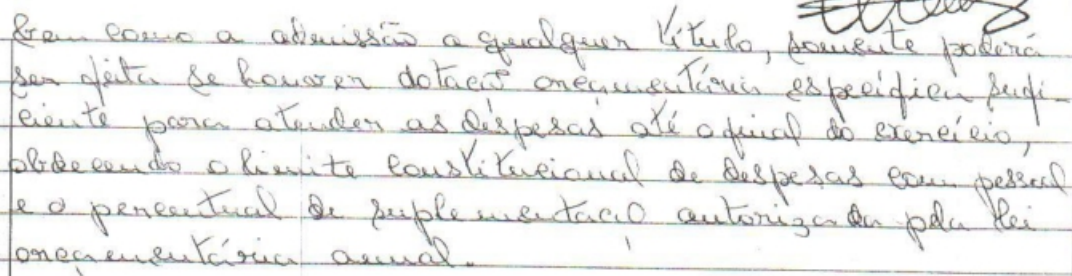 bem como a admissão a qualquer título, somente poderá
ser feita se houver dotação orçamentária específica sufi-
ciente para atender as despesas até o final do exercício,
obdecendo o limite constitucional de despesas com pessoal
e o percentual de suplementação autorizada pela lei
orçamentária anual.